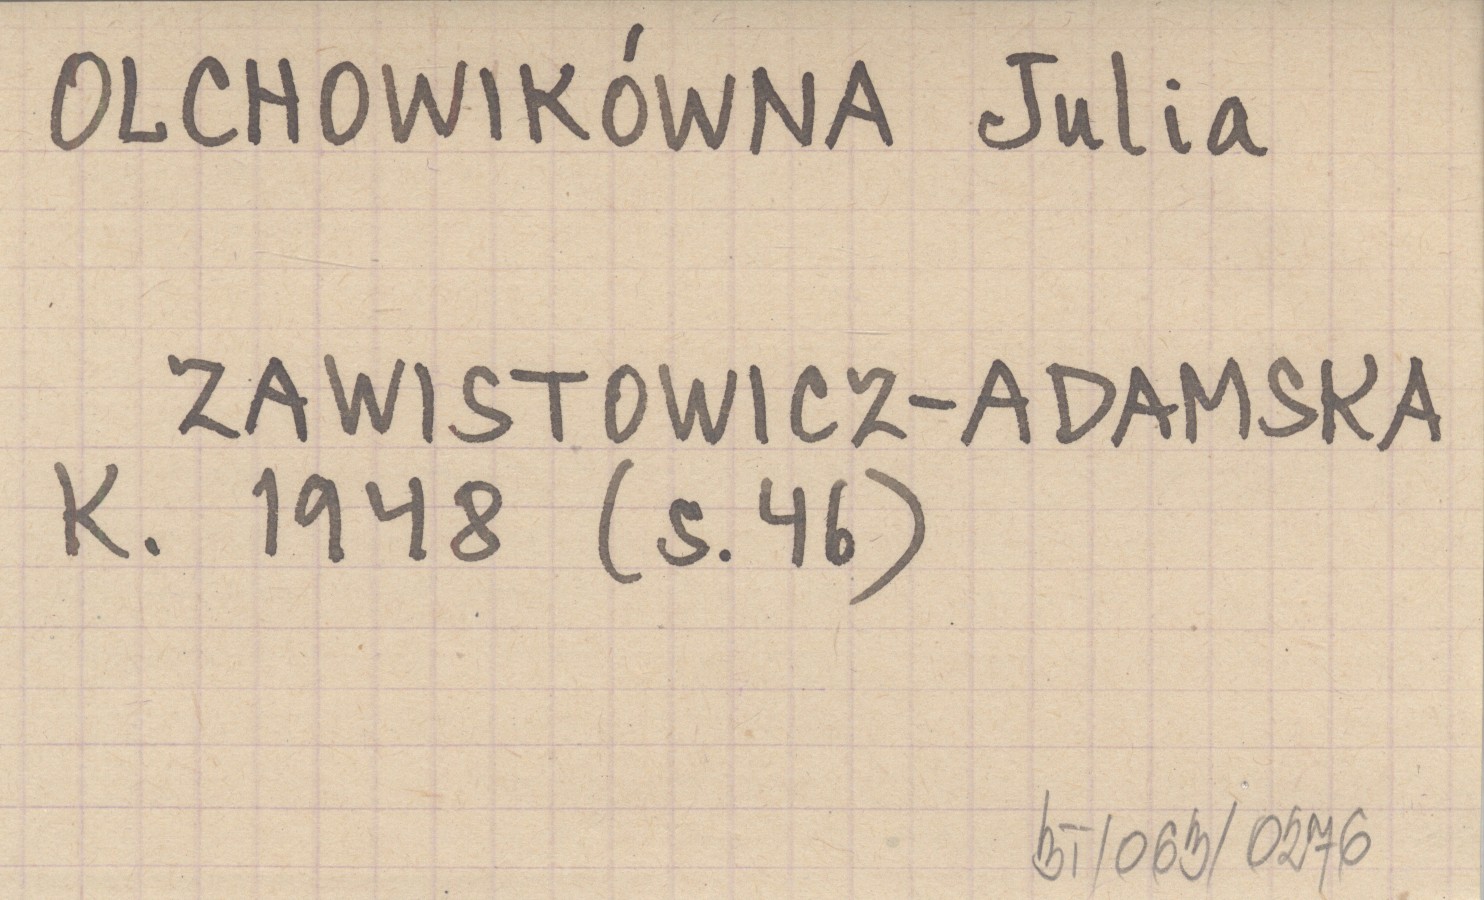 OLCHOWIKÓWNA Julia
ZAWISTOWICZ-ADAMSKA
K. 1948 (s. 46)
/063/0276